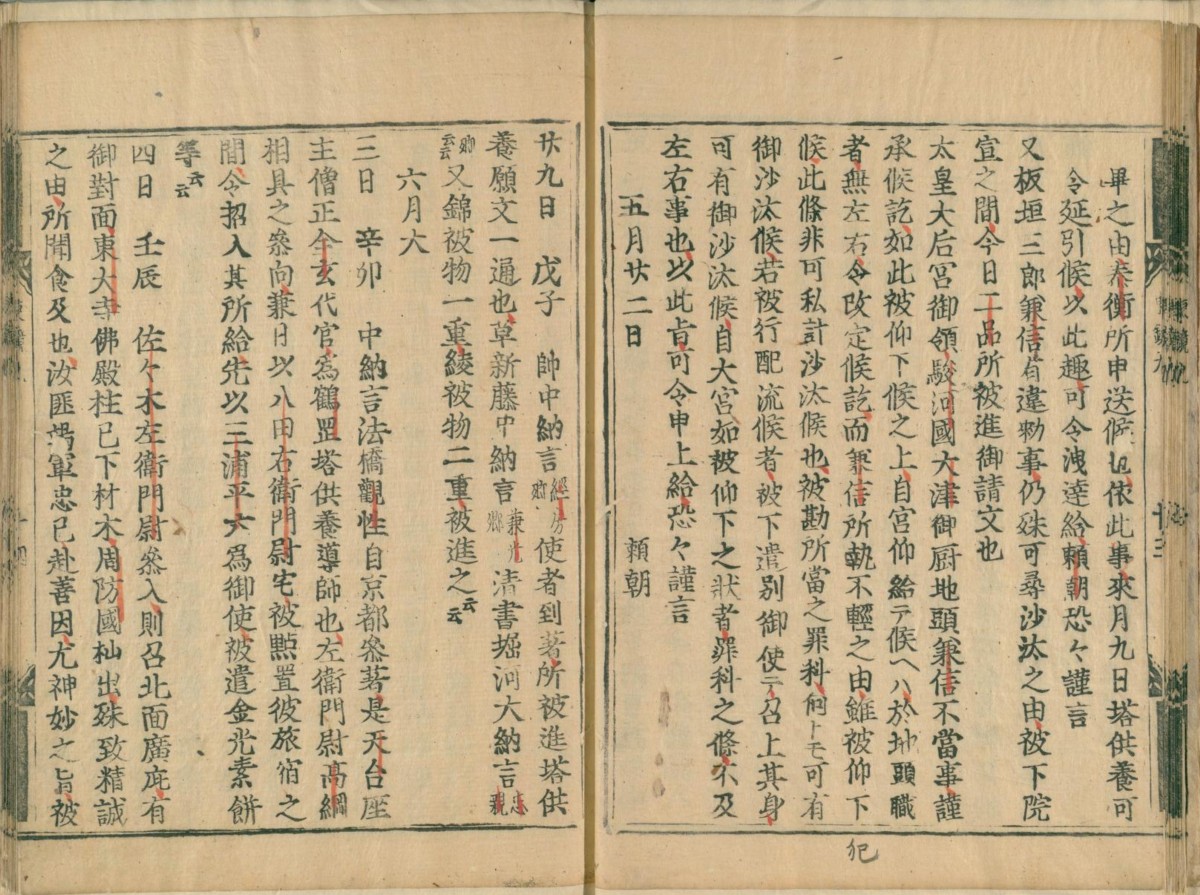 畢之由、泰衡所申送候也、依此事、來月九日塔供養可
令延引候、以此趣、可令洩達給、頼朝恐々謹言
又板垣三郎兼信有違勅事、仍殊可尋沙汰之由、被下院
宣之間、今日二品所被進御請文也
太皇大后宮御領、駿河國大津御厨地頭兼信不當事、謹
承候訖、如此被仰下候之上、自宮仰給テ候ヘハ、於地頭職
者、無左右、令改定候訖、而兼信所執不輕之由、雖被仰下
候、此條非可私計沙汰候也、被勘所當之罪科、何トモ可有
御沙汰候、若被行配流候者、被下遣別御使テ、召上其身、
可有御沙汰候、自大宮、如被仰下之状者、罪科之條、不及
左右事也、以此旨、可令申上給、恐々謹言
五月廿二日 頼朝
犯
廿九日 戊子 帥中納言經房卿使者到著、所被進塔供
養願文一通也、草新藤中納言兼光卿清書堀河大納言忠親
卿云云又錦被物一重、綾被物二重、被進之云云
六月大
三日 辛卯 中納言法橋觀性自京都參著、是天台座
主僧正全玄代官、爲鶴罡塔供養導師也、左衛門尉高綱
相具之參向、兼日以八田右衛門尉宅、被點置彼旅宿之
間、令招入其所給、先以三浦平六爲御使、被遣金光素餅
等云云
四日 壬辰 佐々木左衛門尉參入、則召北面廣庇、有
御對面、東大寺佛殿柱已下材木、周防國杣出殊致精誠
之由、所聞食及也、汝匪啻軍忠、已赴善因、尤神妙之旨被